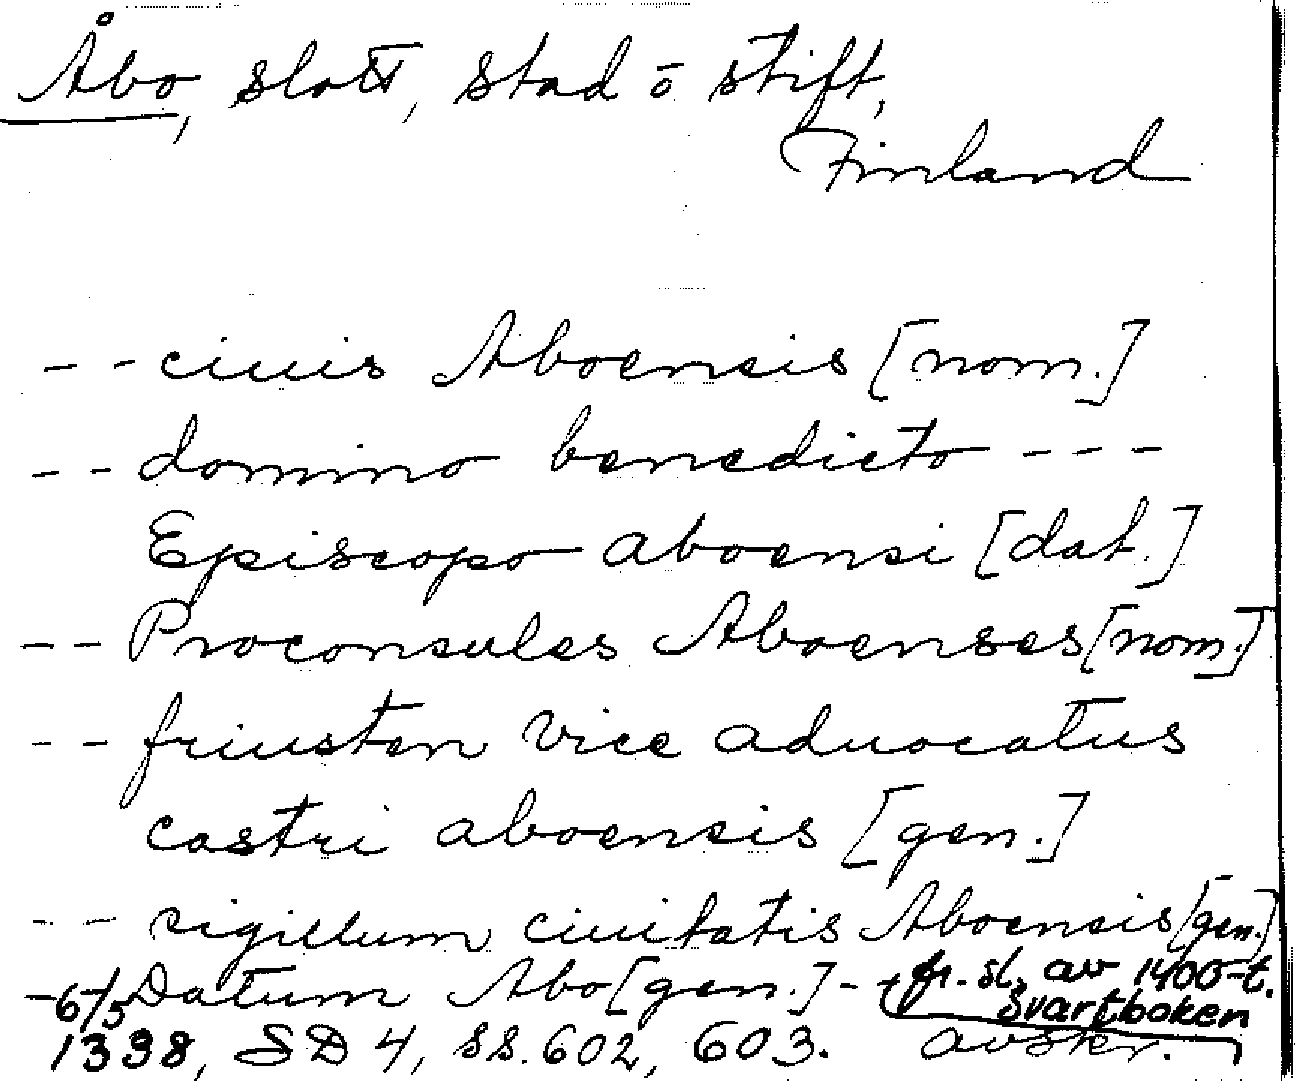 Åbo, slott, stad ō stift,
Finland
-- ciuis Aboensis [nom.]
-- domino benedicto ---
Episcopo aboensi [dat.]
-- Proconsules Aboenses [nom.]
-- friusten vice aduocatus
castri aboensis [gen.]
-- sigillum ciuitatis Aboensis [gen.]
- Datum Abo [gen.] -- fr. sl. av 1400-t.
6/5 Svartboken
1338, SD 4, ss. 602, 603. avskr.